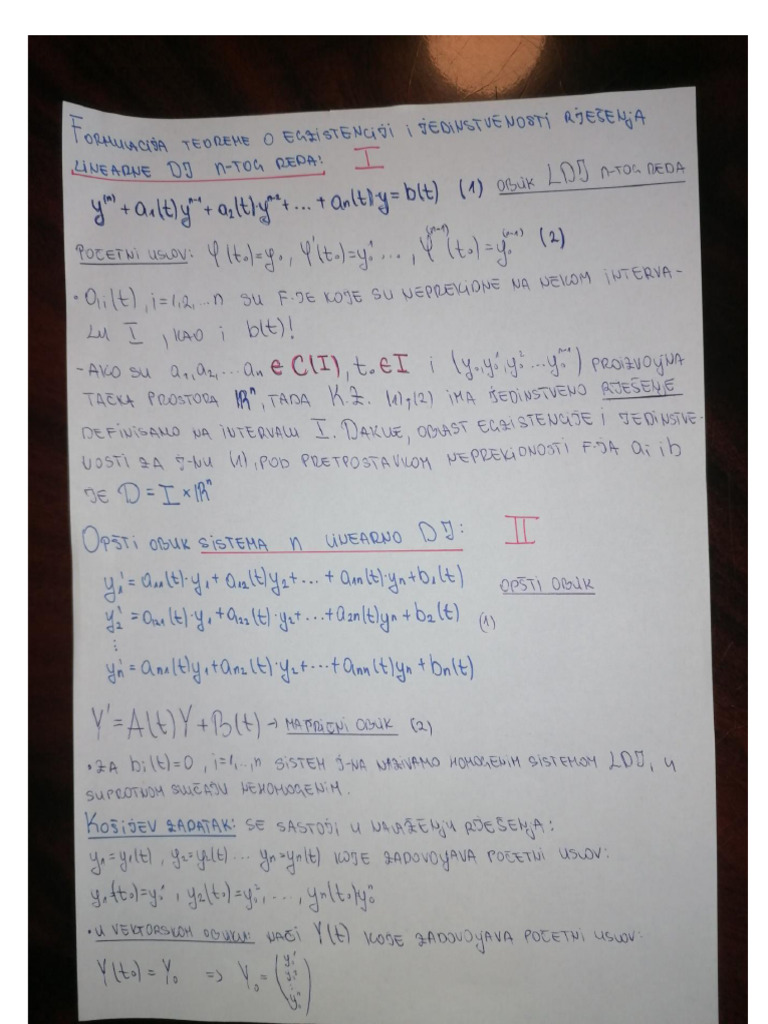 FORMULACIJA TEOREME O EGZISTENCIJI I JEDINSTVENOSTI RJEŠENJA
LINEARNE DJ N-TOG REDA: I
y⁽ⁿ⁾ + a₁(t)yⁿ⁻¹ + a₂(t)·yⁿ⁻² + ... + aₙ(t)·y = b(t) (1) OBLIK LDJ N-TOG REDA
POČETNI USLOV: φ(t₀)=y₀, φ'(t₀)=y₀¹ ..., φ⁽ⁿ⁻¹⁾(t₀)=y₀⁽ⁿ⁻¹⁾ (2)
• aᵢ(t), i=1,2,...n SU F-JE KOJE SU NEPREKIDNE NA NEKOM INTERVA-
LU I, KAO I b(t)!
- AKO SU a₁,a₂,...aₙ ∈ C(I), t₀ ∈ I i (y₀,y₀¹,y₀²...y₀ⁿ⁻¹) PROIZVOJNA
TAČKA PROSTORA ℝⁿ, TADA K.Z. (1),(2) IMA JEDINSTVENO RJEŠENJE
DEFINISANO NA INTERVALU I. DAKLE, OBLAST EGZISTENCIJE I JEDINSTVE-
NOSTI ZA J-NU (1), POD PRETPOSTAVKOM NEPREKIDNOSTI F-JA aᵢ i b
JE D = I × ℝⁿ
OPŠTI OBLIK SISTEMA N LINEARNO DJ: II
y₁' = a₁₁(t)·y₁ + a₁₂(t)y₂ + ... + a₁ₙ(t)·yₙ + b₁(t) OPŠTI OBLIK
y₂' = a₂₁(t)·y₁ + a₂₂(t)·y₂ + ... + a₂ₙ(t)yₙ + b₂(t) (1)
⋮
yₙ' = aₙ₁(t)y₁ + aₙ₂(t)·y₂ + ... + aₙₙ(t)yₙ + bₙ(t)
Y' = A(t)Y + B(t) → MATRIČNI OBLIK (2)
• ZA bᵢ(t)=0, i=1,..,n SISTEM J-NA NAZIVAMO HOMOGENIM SISTEMOM LDJ, U
SUPROTNOM SLUČAJU NEHOMOGENIM.
KOŠIJEV ZADATAK: SE SASTOJI U NALAŽENJU RJEŠENJA:
y₁=y₁(t), y₂=y₂(t) ... yₙ=yₙ(t) KOJE ZADOVOJAVA POČETNI USLOV:
y₁(t₀)=y₀¹, y₂(t₀)=y₀², ..., yₙ(t₀)y₀ⁿ
• U VEKTORSKOM OBLIKU: NAĆI Y(t) KOJE ZADOVOJAVA POČETNI USLOV:
Y(t₀) = Y₀ => Y₀ = (y₀¹ y₀² ⋮ y₀ⁿ)